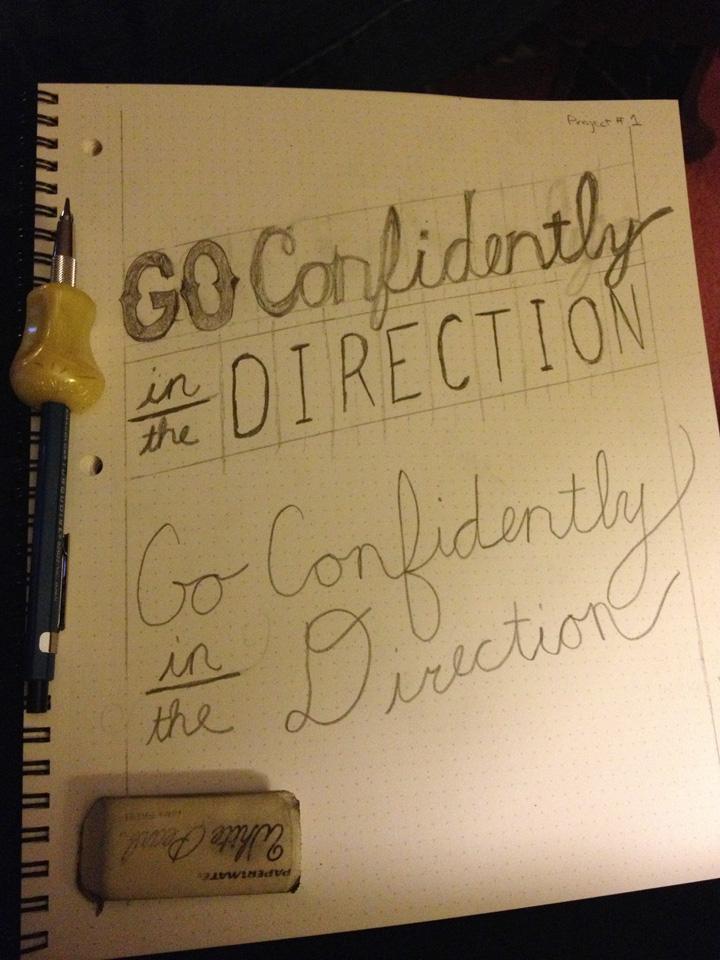 Project # 1
GO Confidently
in the DIRECTION
Go Confidently
in the Direction
PAPERMATE.
White Pearl